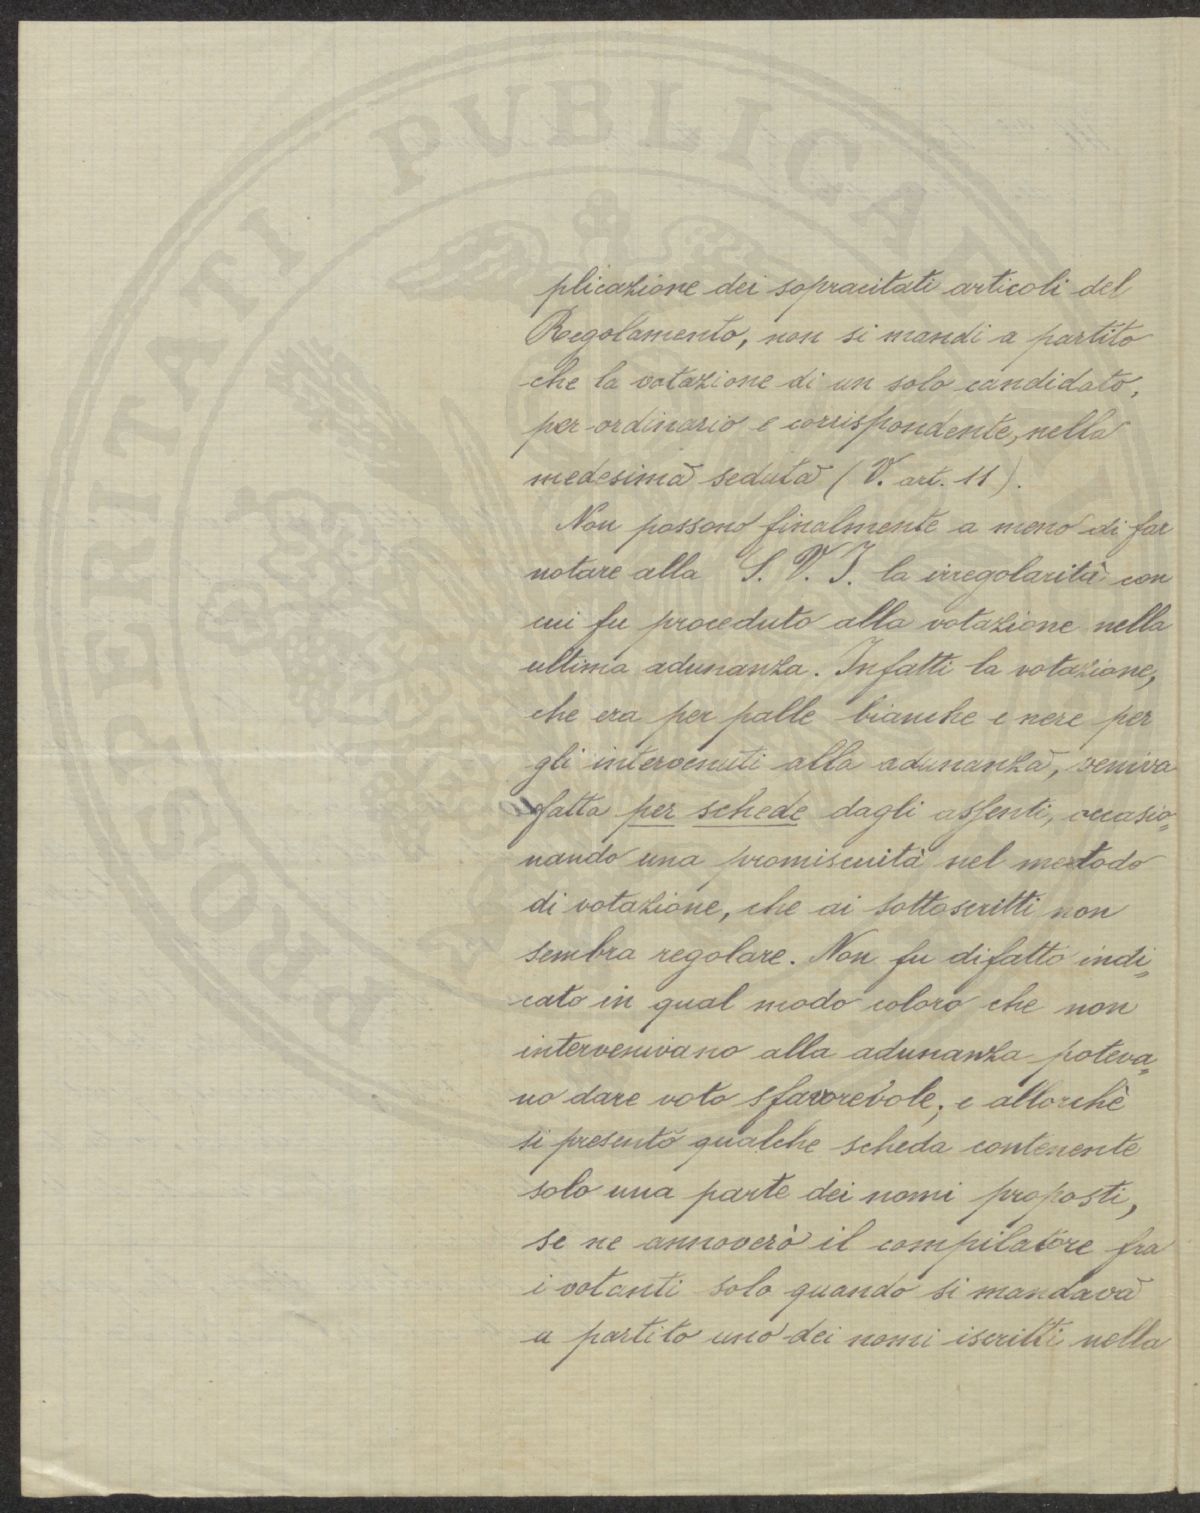 plicazione dei sopracitati articoli del
Regolamento, non si mandi a partito
che la votazione di un solo candidato,
per ordinario e corrispondente, nella
medesima seduta (V. art. 11).
Non possono finalmente a meno di far
notare alla S. V. I. la irregolarità con
cui fu proceduto alla votazione nella
ultima adunanza. Infatti la votazione,
che era per palle bianche e nere per
gli intervenuti alla adunanza, veniva
fatta per schede dagli assenti, occasio-
nando una promiscuità nel metodo
di votazione, che ai sottoscritti non
sembra regolare. Non fu difatto indi-
cato in qual modo coloro che non
intervenivano alla adunanza poteva-
no dare voto sfavorevole; e allorchè
si presentò qualche scheda contenente
solo una parte dei nomi proposti,
se ne annoverò il compilatore fra
i votanti solo quando si mandava
a partito uno dei nomi iscritti nella